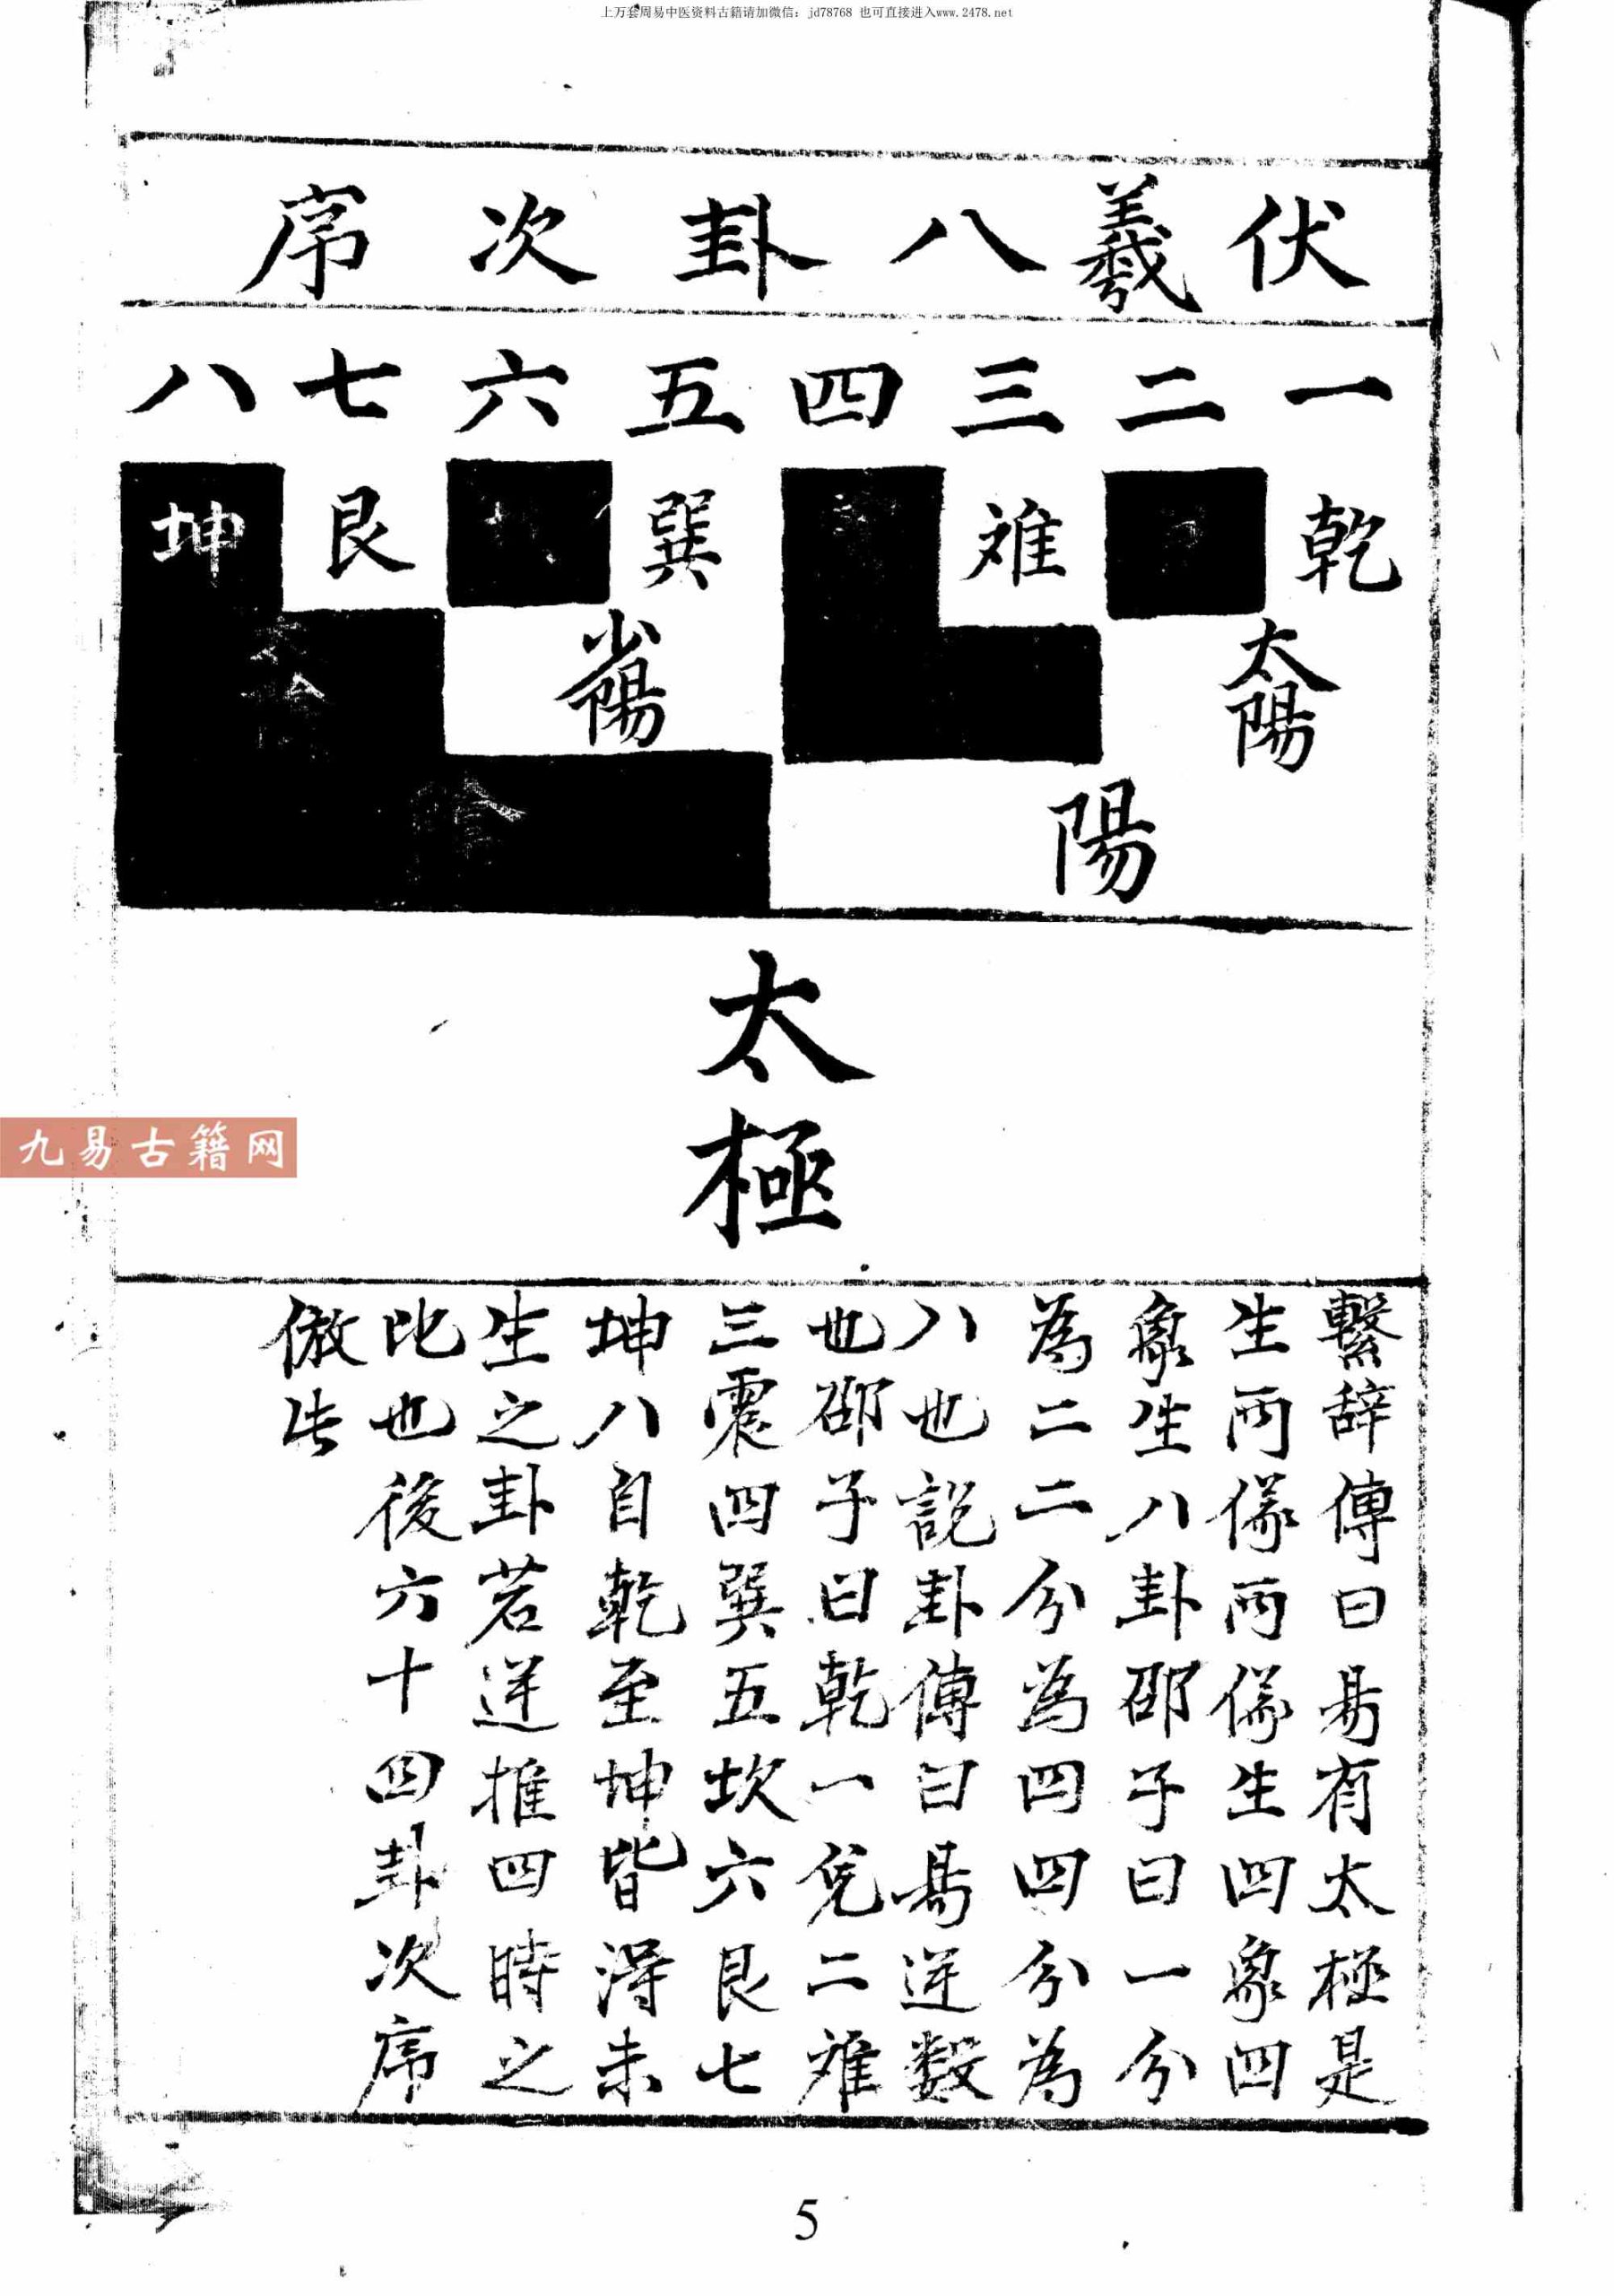 上万套周易中医资料古籍请加微信：jd78768 也可直接进入www.2478.net
伏羲八卦次序
一二三四五六七八
乾
離
巽
艮
坤
太陽
少陽
太陰
陽
陰
太極
繫辞傳曰易有太極是
生兩儀兩儀生四象四
象生八卦邵子曰一分
為二二分為四四分為
八也說卦傳曰易逆數
也邵子曰乾一兌二離
三震四巽五坎六艮七
坤八自乾至坤皆得未
生之卦若逆推四時之
比也後六十四卦次序
倣此
九易古籍网
5